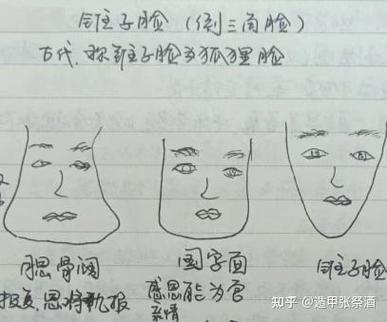 锥子脸（倒三角脸）
古代称锥子脸为狐狸脸
腮骨阔
国字面
锥子脸
恩将仇报
感恩能为官
亲情
知乎 @遁甲张祭酒